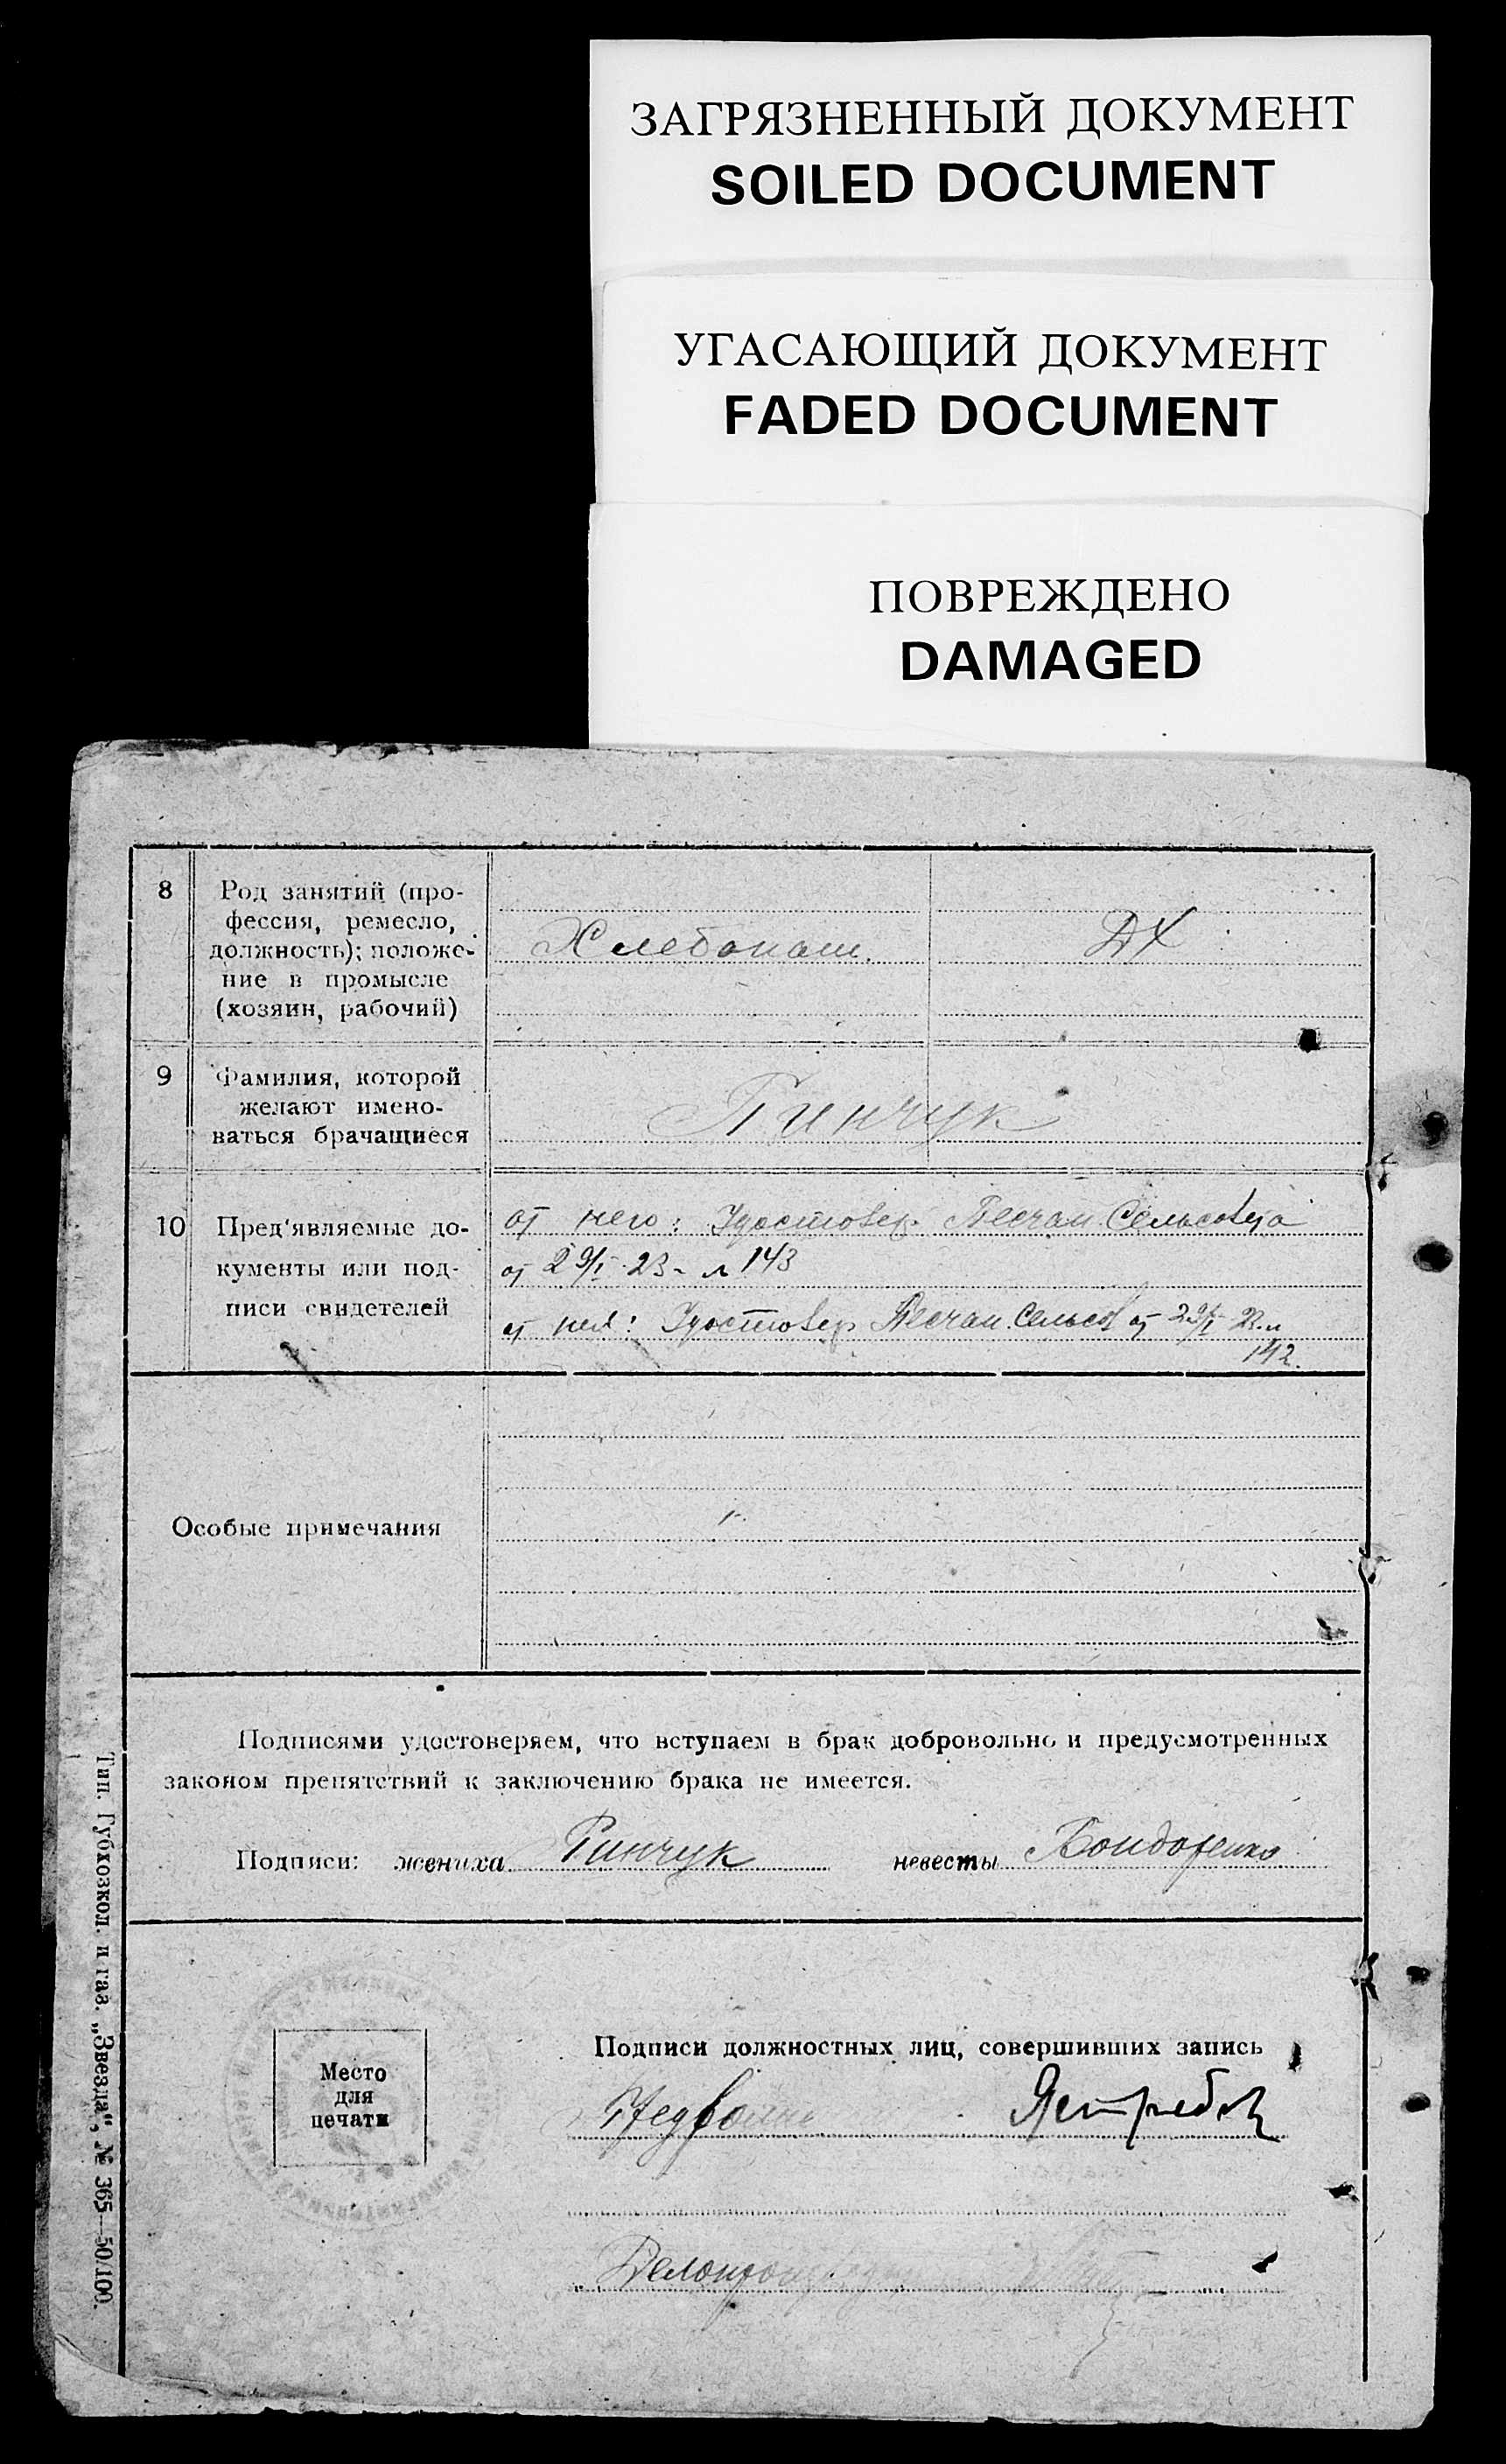 ЗАГРЯЗНЕННЫЙ ДОКУМЕНТ
SOILED DOCUMENT
УГАСАЮЩИЙ ДОКУМЕНТ
FADED DOCUMENT
ПОВРЕЖДЕНО
DAMAGED
8
Род занятий (про-
фессия, ремесло,
должность); положе-
ние в промысле
(хозяин, рабочий)
Хлебопаш.
ДХ
9
Фамилия, которой
желают имено-
ваться брачащиеся
Пинчук
10
Пред'являемые до-
кументы или под-
писи свидетелей
от него: Удостовер. Песчан. Сельсовета
от 29/I-23- № 143
от нея: Удостовер Песчан. Сельсов от 29/I 23 №
142.
Особые примечания
Подписями удостоверяем, что вступаем в брак добровольно и предусмотренных
законом препятствий к заключению брака не имеется.
Подписи: жениха Пинчук невесты Бондаренко
Место
для
печати
Подписи должностных лиц, совершивших запись
Ястребов
Делопроизвод
Тип. Губхозкол. и газ. „Звезда“, № 365—50/100.